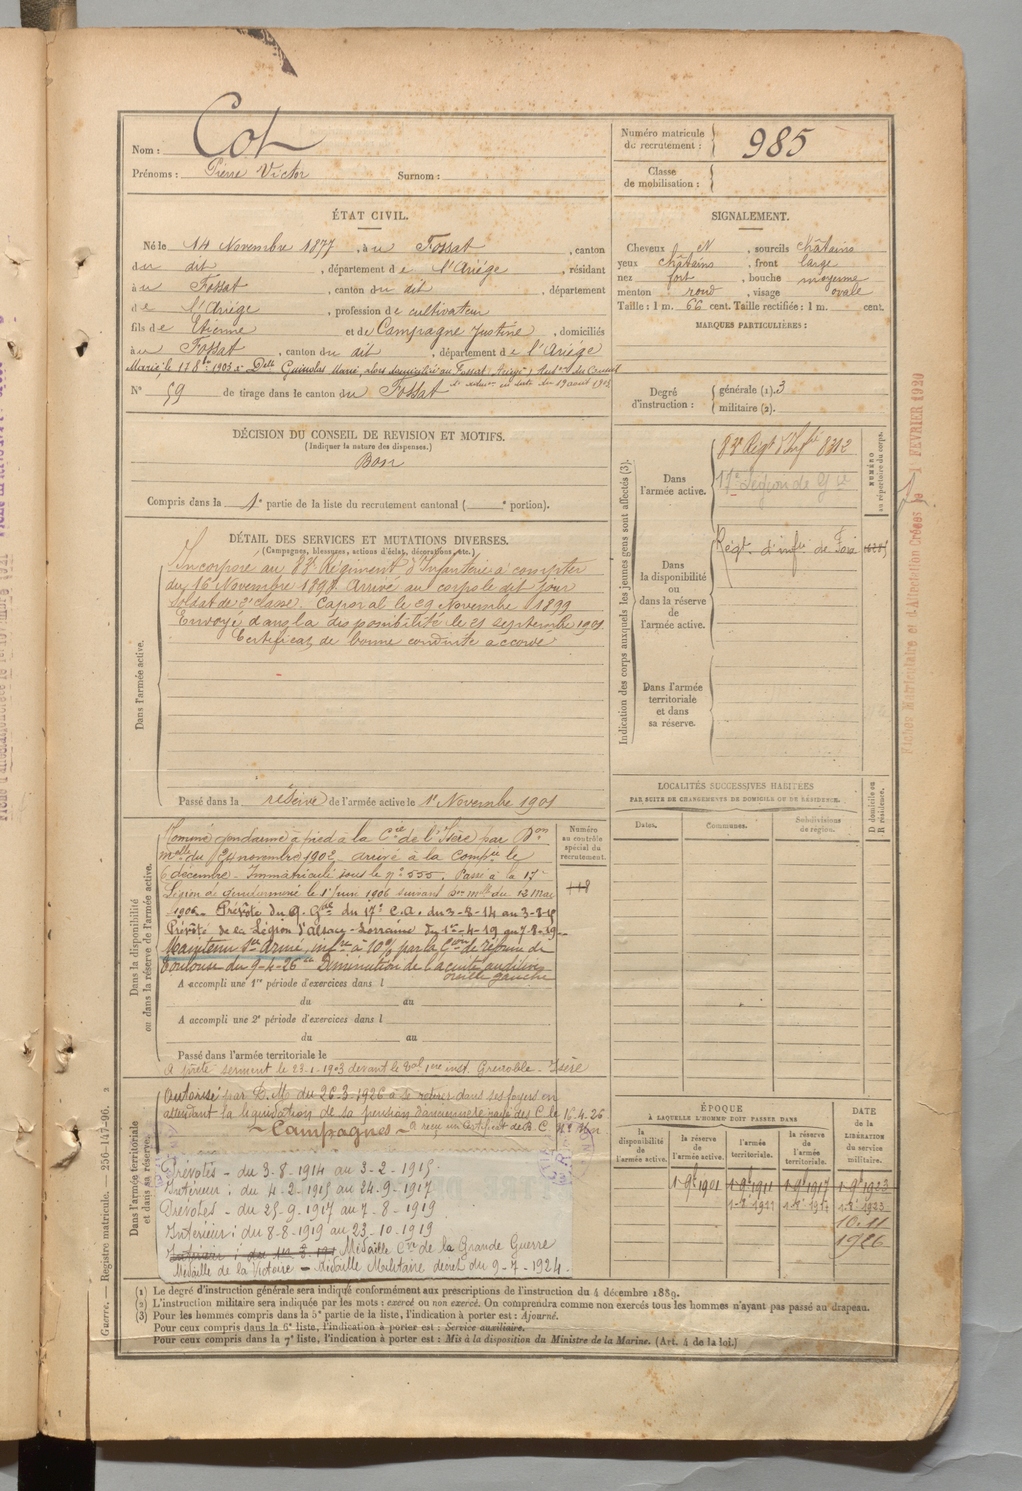 Nom : Cot
Prénoms : Pierre Victor Surnom :
Numéro matricule de recrutement : 985
Classe de mobilisation :
ÉTAT CIVIL.
Né le 14 Novembre 1877, à u Fossat, canton
du dit, département de l'Ariége, résidant
à u Fossat, canton du dit, département
de l'Ariége, profession de cultivateur
fils de Etienne et de Campagne Justine, domiciliés
à u Fossat, canton du dit, département de l'Ariége
Marié le 17 8bre 1903 à Delle Guinolas Marie, alors domiciliée au Fossat (Ariège)
en date du 19 août 1903
N° 59 de tirage dans le canton du Fossat
SIGNALEMENT.
Cheveux N, sourcils châtains
yeux châtains, front large
nez fort, bouche moyenne
menton rond, visage ovale
Taille : 1 m. 66 cent. Taille rectifiée : 1 m. cent.
MARQUES PARTICULIÈRES :
Degré d'instruction : générale (1). 3
militaire (2).
DÉCISION DU CONSEIL DE REVISION ET MOTIFS.
(Indiquer la nature des dispenses.)
Bon
Compris dans la 1e partie de la liste du recrutement cantonal ( e portion).
DÉTAIL DES SERVICES ET MUTATIONS DIVERSES.
(Campagnes, blessures, actions d'éclat, décorations, etc.)
Dans l'armée active.
Incorporé au 83e Régiment d'Infanterie à compter
du 16 Novembre 1898 Arrivé au corps le dit jour
soldat de 2e classe. Caporal le 29 Novembre 1899
Envoyé dans la disponibilité le 21 septembre 1901
Certificat de bonne conduite accordé
Passé dans la réserve de l'armée active le 1er Novembre 1901
Indication des corps auxquels les jeunes gens sont affectés (3).
Dans l'armée active.
83e Régt d'Infie 8312
17e Légion de Gie
NUMÉRO au répertoire du corps.
Dans la disponibilité ou dans la réserve de l'armée active.
Régt d'infie de Foix
Dans l'armée territoriale et dans sa réserve.
Fiches Matriculaire et d'Affectation Créées le 1 FEVRIER 1920
Dans la disponibilité ou dans la réserve de l'armée active.
Nommé gendarme à pied à la Cie de l'Isère par Don
melle du 24 novembre 1902 arrivé à la Compie le
6 décembre - Immatriculé sous le n° 555. Passé à la 17e
Légion de gendarmerie le 1er Juin 1906 suivant Don melle du 13 Mai
1906. Prévôté du Q. Gal du 17e C.A. du 3-8-14 au 3-2-15
Prévôté de la Légion d'Alsace-Lorraine du 1er-4-19 au 7-8-19
Maintenu Sce Armé, infre à 10% par la Con de réforme de
Toulouse du 9-4-26 Diminution de l'acuité auditive
oreille gauche
Numéro au contrôle spécial du recrutement.
118
A accompli une 1re période d'exercices dans l
du au
A accompli une 2e période d'exercices dans l
du au
Passé dans l'armée territoriale le
A prêté serment le 23-1-1903 devant le Bal 1ère inst. Grenoble - Isère
LOCALITÉS SUCCESSIVES HABITÉES
PAR SUITE DE CHANGEMENTS DE DOMICILE OU DE RÉSIDENCE.
Dates. Communes. Subdivisions de région. D domicile ou R résidence.
Dans l'armée territoriale et dans sa réserve.
Autorisé par D.M du 26-3-1926 à se retirer dans ses foyers en
attendant la liquidation de sa pension d'ancienneté rayé des C. le 16.4.26
Campagnes - A reçu un Certificat de B.C.
Prévôtés - du 3-8-1914 au 3-2-1915
Intérieur : du 4-2-1915 au 24-9-1917
Prévôtés - du 25-9-1917 au 7-8-1919
Intérieur : du 8-8-1919 au 23-10-1919
Médaille Cve de la Grande Guerre
Médaille de la Victoire - Médaille Militaire décret du 9-7-1924.
ÉPOQUE
À LAQUELLE L'HOMME DOIT PASSER DANS
la disponibilité de l'armée active. la réserve de l'armée active. l'armée territoriale. la réserve de l'armée territoriale. DATE DE LA LIBÉRATION du service militaire.
1-9e 1901 1-9e 1911 1-9e 1917 1-9e 1923
10.11
1926
(1) Le degré d'instruction générale sera indiqué conformément aux prescriptions de l'instruction du 4 décembre 1889.
(2) L'instruction militaire sera indiquée par les mots : exercé ou non exercé. On comprendra comme non exercés tous les hommes n'ayant pas passé au drapeau.
(3) Pour les hommes compris dans la 5e partie de la liste, l'indication à porter est : Ajourné.
Pour ceux compris dans la 6e liste, l'indication à porter est : Service auxiliaire.
Pour ceux compris dans la 7e liste, l'indication à porter est : Mis à la disposition du Ministre de la Marine. (Art. 4 de la loi.)
Guerre. — Registre matricule. — 256-147-96.